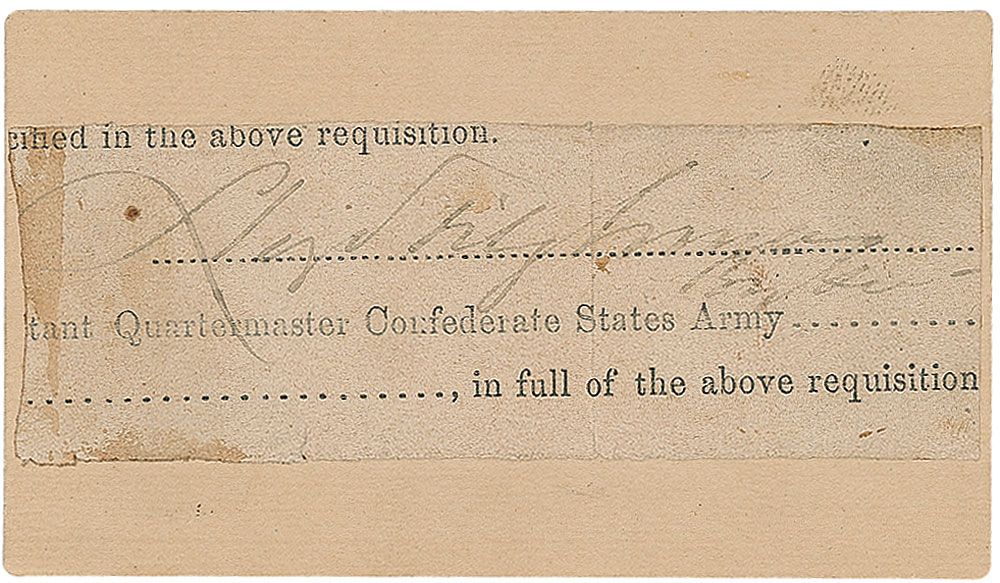 cified in the above requisition.
Lloyd Tilghman
tant Quartermaster Confederate States Army
, in full of the above requisition